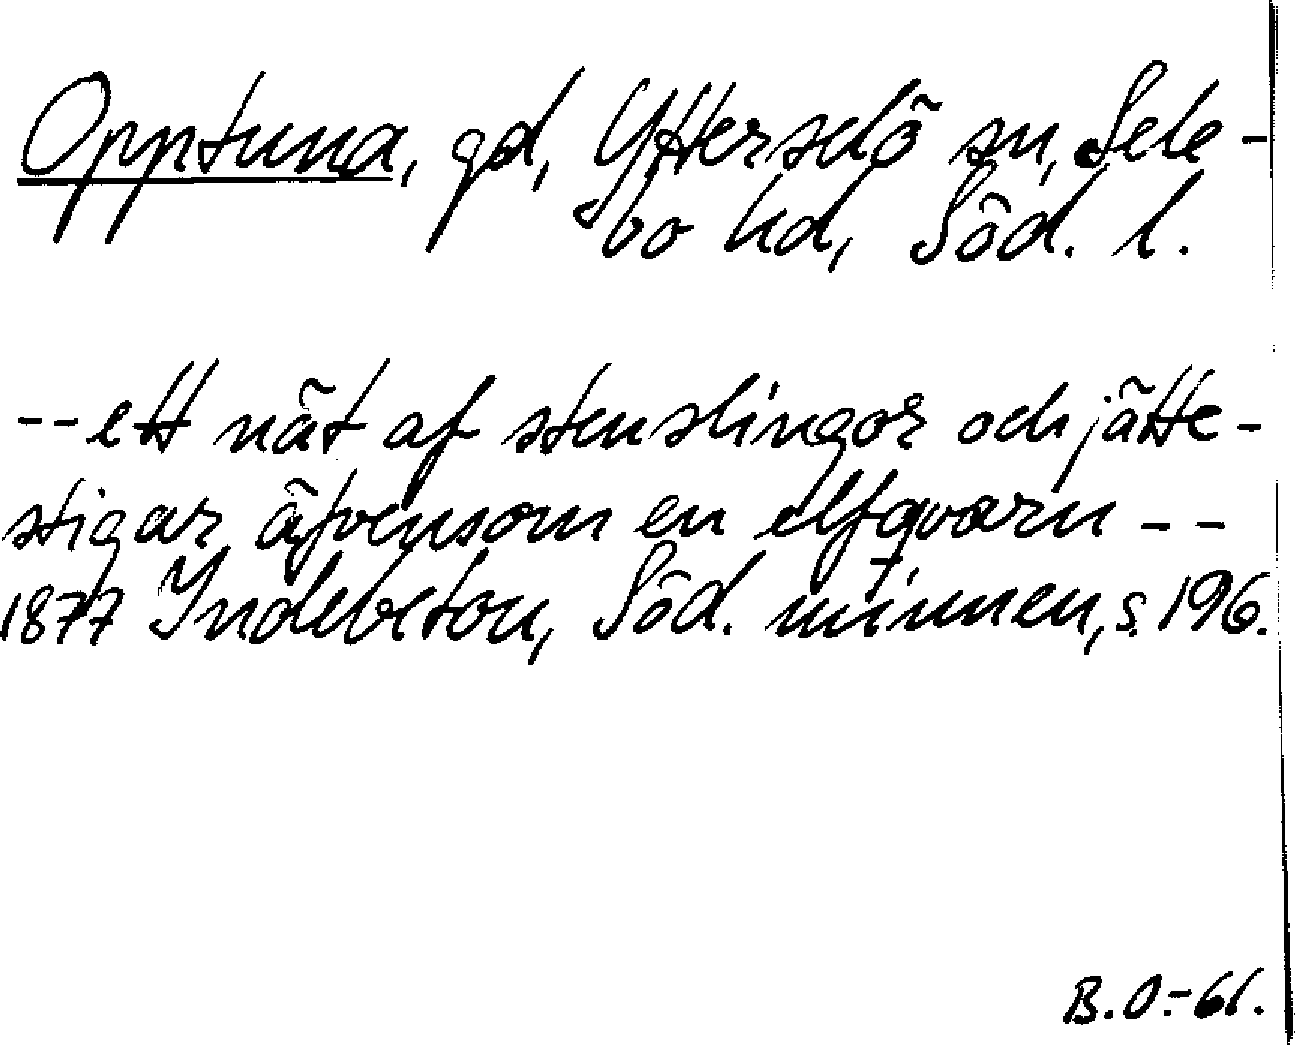 Opptuna, gd, Ytterselö sn, Sele-
bo hd, Söd. l.
-- ett nät af stenslingor och jätte-
stigar äfvensom en elfqvarn --
1877 Indebetou, Söd. minnen, s. 196.
B.O.-61.